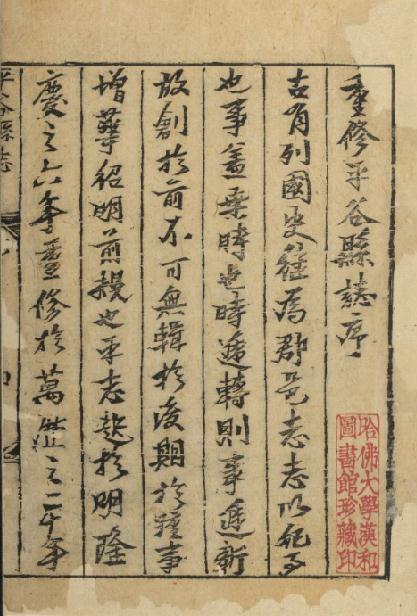 重修平谷縣誌序
古有列國史繼爲郡邑志志以紀事
也事蓋乘時也時遞轉則事遞新
故創於前不可無輯於後期於種事
增華紹明前
也平志起於明隆
慶之六年重修於萬曆之二十年
平谷縣志
哈佛大學漢和
圖書館珍藏印